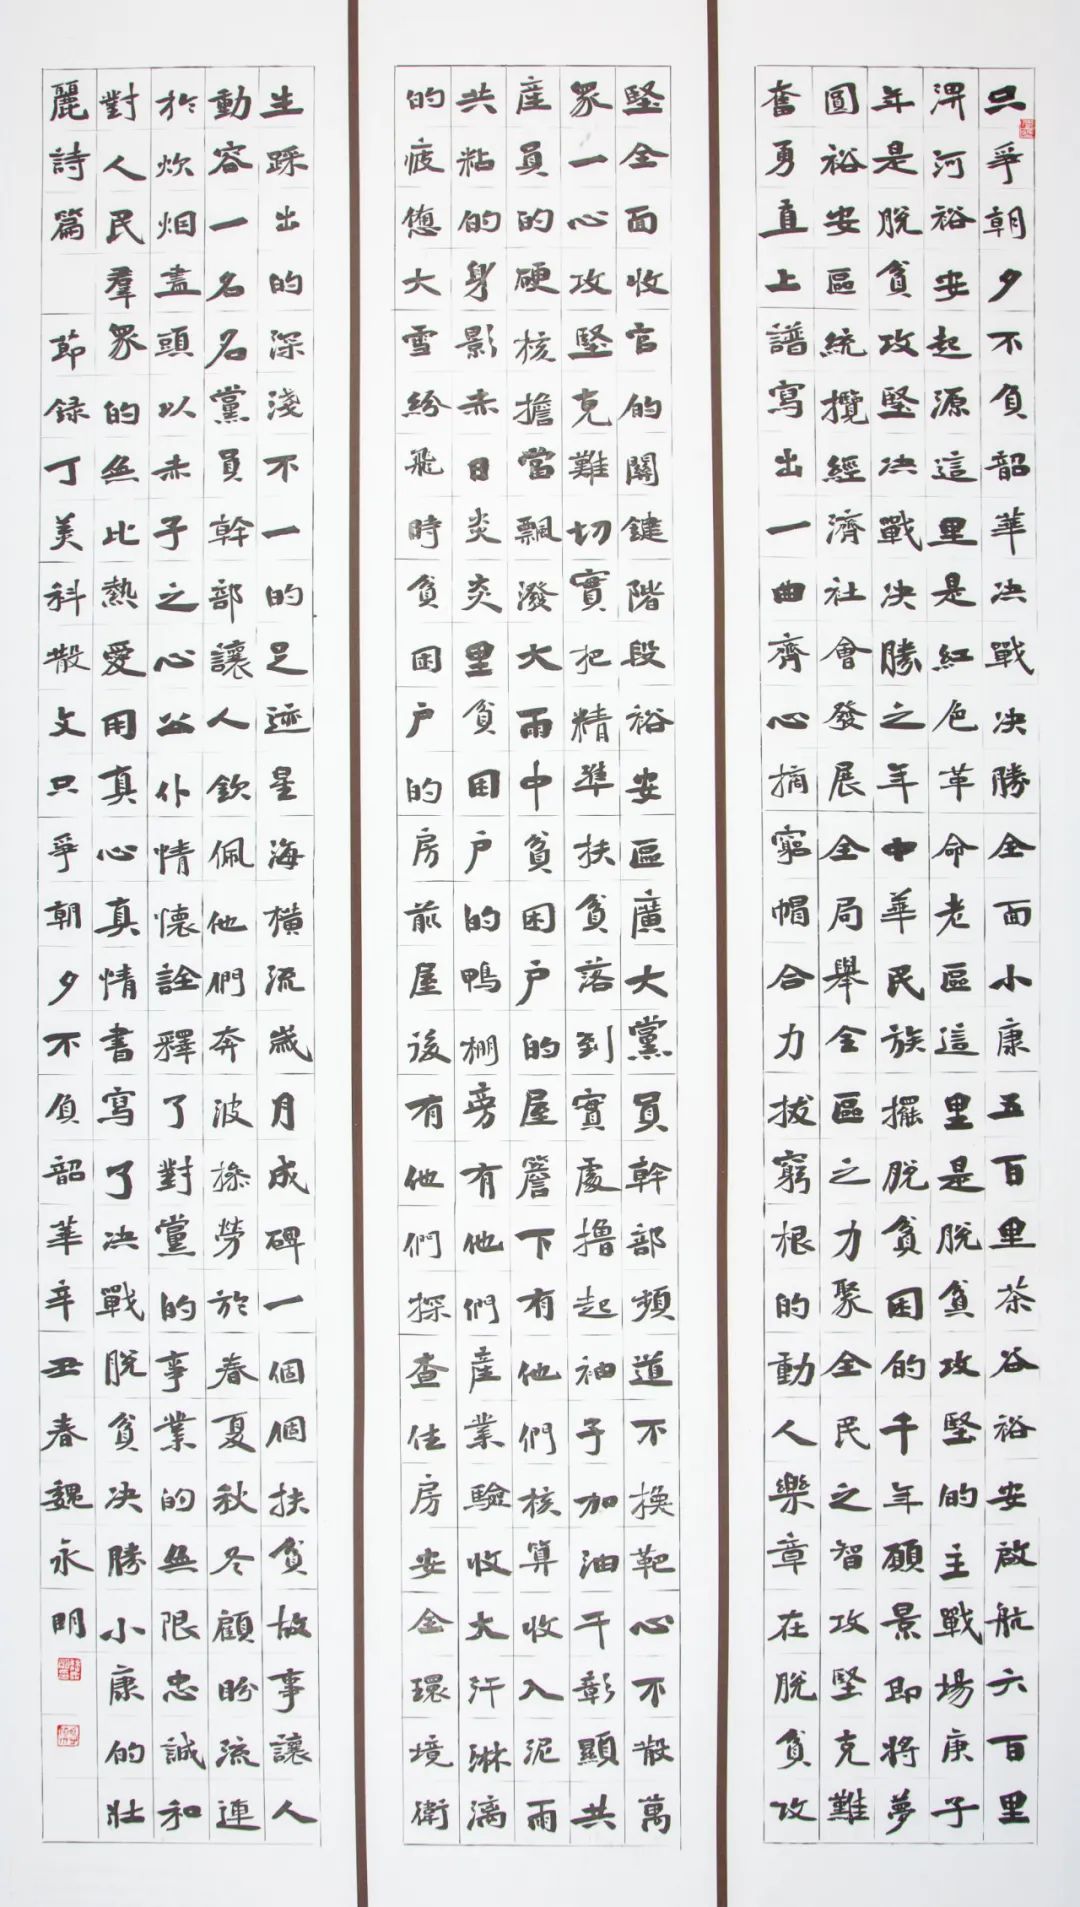 只爭朝夕不負韶華决戰决勝全面小康五百里茶谷裕安啟航六百里
淠河裕安起源這里是紅色革命老區這里是脱貧攻堅的主戰場庚子
年是脱貧攻堅决戰决勝之年中華民族擺脱貧困的千年願景即將夢
圓裕安區統攬經濟社會發展全局舉全區之力聚全民之智攻堅克難
奮勇直上譜寫出一曲齊心摘窮帽合力拔窮根的動人樂章在脱貧攻
堅全面收官的關鍵階段裕安區廣大黨員幹部頻道不换靶心不散萬
眾一心攻堅克難切實把精準扶貧落到實處擼起袖子加油干彰顯共
産員的硬核擔當飄潑大雨中貧困户的屋簷下有他們核算收入泥雨
共粘的身影赤日炎炎里貧困户的鴨棚旁有他們産業驗收大汗淋漓
的疲憊大雪紛飛時貧困户的房前屋後有他們探查住房安全環境衛
生踩出的深淺不一的足迹星海横流歲月成碑一個個扶貧故事讓人
動容一名名黨員幹部讓人欽佩他們奔波操勞於春夏秋冬顧盼流連
於炊烟盡頭以赤子之心公仆情懷詮釋了對黨的事業的無限忠誠和
對人民羣眾的無比熱愛用真心真情書寫了决戰脱貧决勝小康的壯
麗詩篇 節録丁美科散文只爭朝夕不負韶華辛丑春魏永明